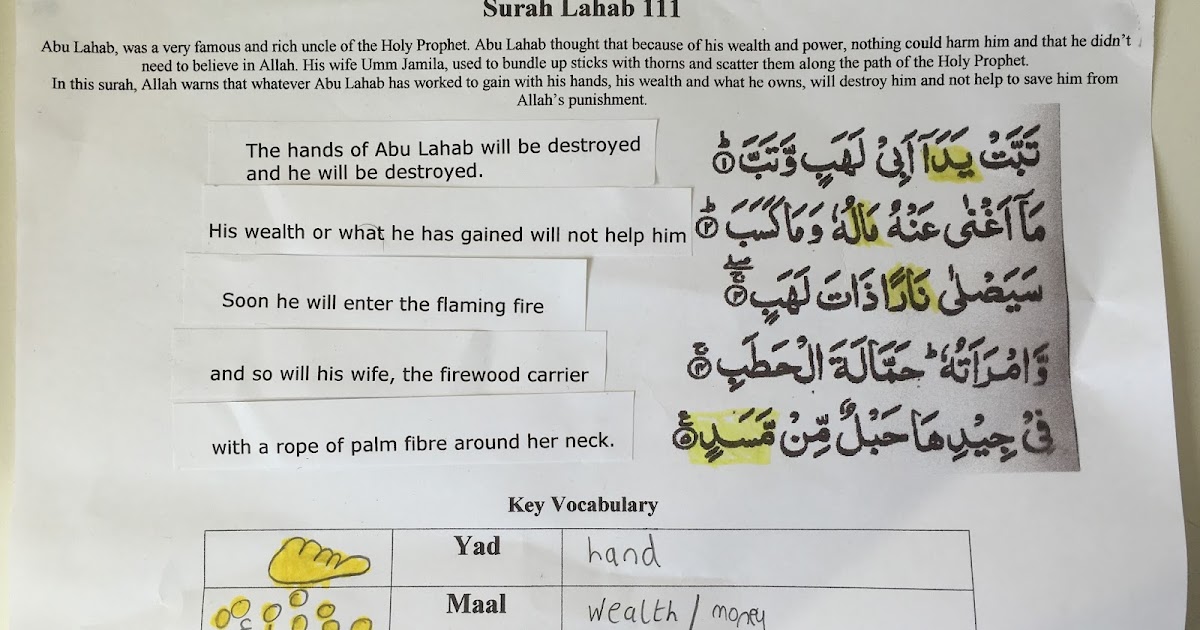 Surah Lahab 111
Abu Lahab, was a very famous and rich uncle of the Holy Prophet. Abu Lahab thought that because of his wealth and power, nothing could harm him and that he didn't
need to believe in Allah. His wife Umm Jamila, used to bundle up sticks with thorns and scatter them along the path of the Holy Prophet.
In this surah, Allah warns that whatever Abu Lahab has worked to gain with his hands, his wealth and what he owns, will destroy him and not help to save him from
Allah's punishment.
The hands of Abu Lahab will be destroyed
and he will be destroyed.
تَبَّتْ يَدَآ اَبِىْ لَهَبٍ وَّتَبَّ ؕ‏ ﴿۱﴾
His wealth or what he has gained will not help him
مَاۤ اَغْنٰى عَنْهُ مَالُهٗ وَمَا كَسَبَ ؕ‏ ﴿۲﴾
Soon he will enter the flaming fire
سَيَصْلٰى نَارًا ذَاتَ لَهَبٍ ۖۚ‏ ﴿۳﴾
and so will his wife, the firewood carrier
وَّامْرَاَتُهٗ ؕ حَمَّالَةَ الْحَطَبِ ۚ‏ ﴿۴﴾
with a rope of palm fibre around her neck.
فِىْ جِيْدِهَا حَبْلٌ مِّنْ مَّسَدٍ ﴿۵﴾
Key Vocabulary
Yad hand
Maal wealth / money